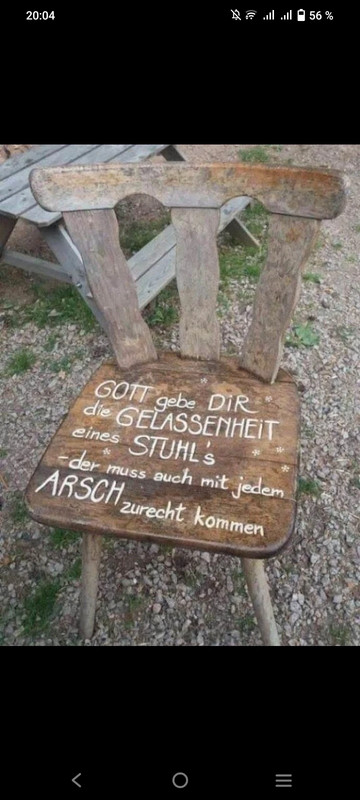 20:04
56 %
GOTT gebe DIR
die GELASSENHEIT
eines STUHL's
-der muss auch mit jedem
ARSCH zurecht kommen